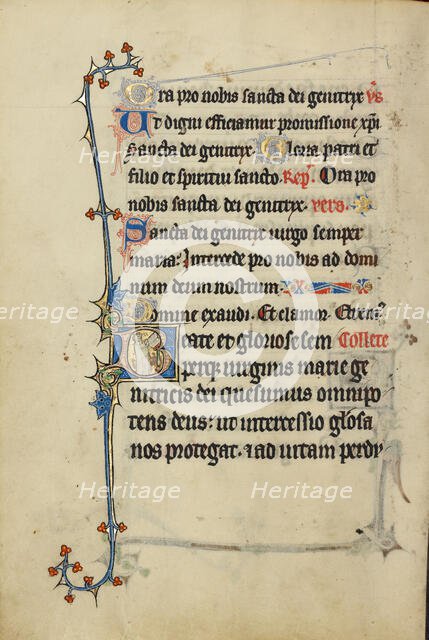 Ora pro nobis sancta dei genitrix vs
Ut digni efficiamur promissione xpi
Sancta dei genitrix. Gloria patri et
filio et spiritui sancto. Resp. Ora pro
nobis sancta dei genitrix. vers.
Sancta dei genitrix uirgo semper
maria: Intercede pro nobis ad domi
num deum nostrum.
Domine exaudi. Et clamor. Et ueni.
Beate et gloriose sem Collecte
perque uirginis marie ge
nitricis dei quesumus omnipo
tens deus: ut intercessio glosa
nos protegat. & ad uitam perdu
Heritage Heritage Heritage
Heritage Heritage Heritage
Heritage Heritage